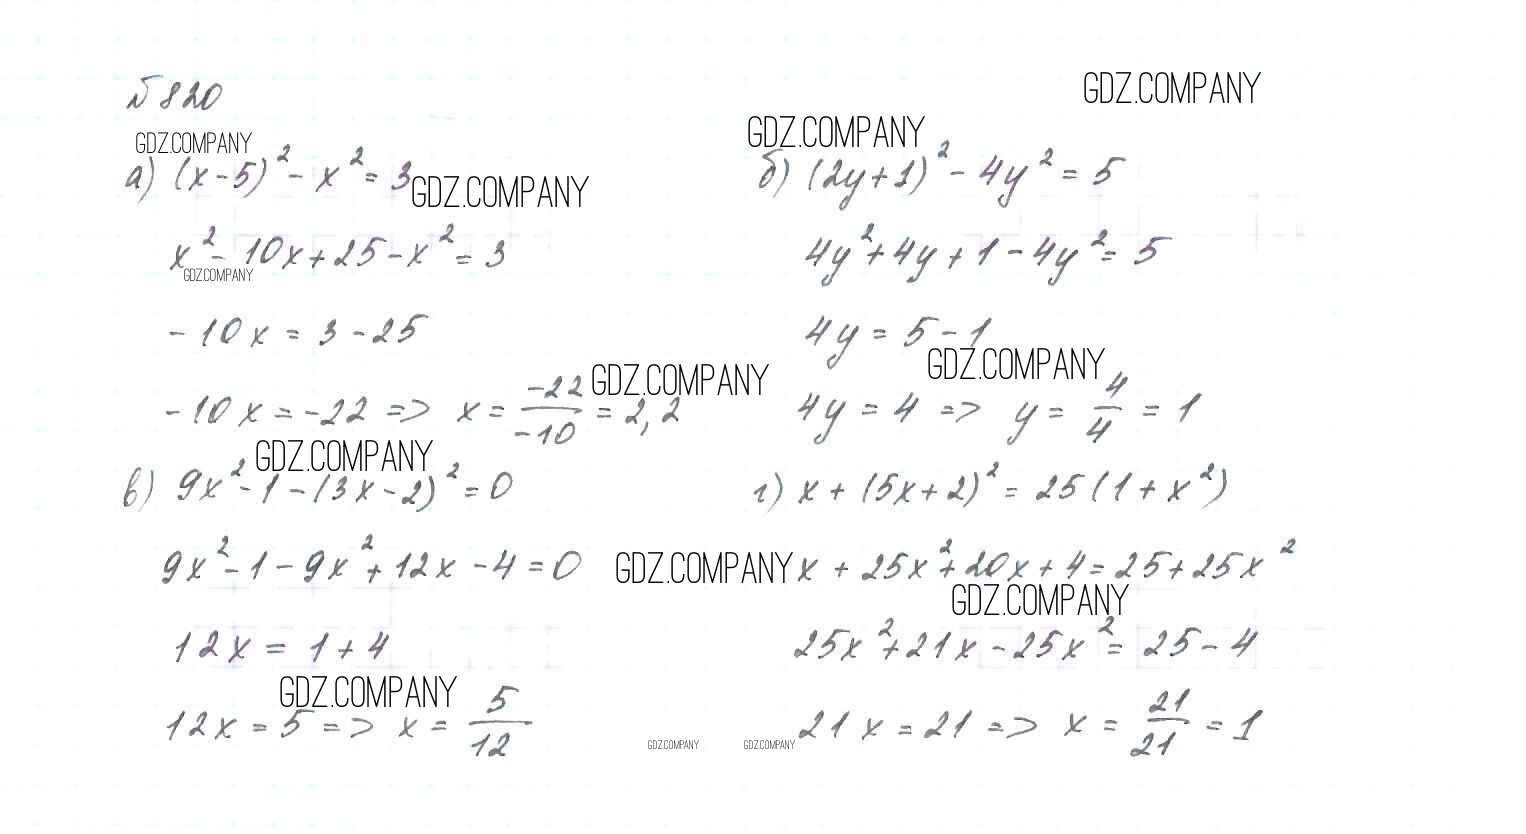 № 820
GDZ.COMPANY
GDZ.COMPANY
GDZ.COMPANY
а) (x-5)² - x² = 3
GDZ.COMPANY
x² - 10x + 25 - x² = 3
GDZ.COMPANY
-10x = 3 - 25
-10x = -22 => x = -22/-10 = 2,2
GDZ.COMPANY
б) (2y+1)² - 4y² = 5
4y² + 4y + 1 - 4y² = 5
4y = 5 - 1
GDZ.COMPANY
4y = 4 => y = 4/4 = 1
GDZ.COMPANY
в) 9x² - 1 - (3x-2)² = 0
9x² - 1 - 9x² + 12x - 4 = 0
12x = 1 + 4
GDZ.COMPANY
12x = 5 => x = 5/12
г) x + (5x+2)² = 25(1+x²)
GDZ.COMPANY
x + 25x² + 20x + 4 = 25 + 25x²
GDZ.COMPANY
25x² + 21x - 25x² = 25 - 4
21x = 21 => x = 21/21 = 1
GDZ.COMPANY
GDZ.COMPANY